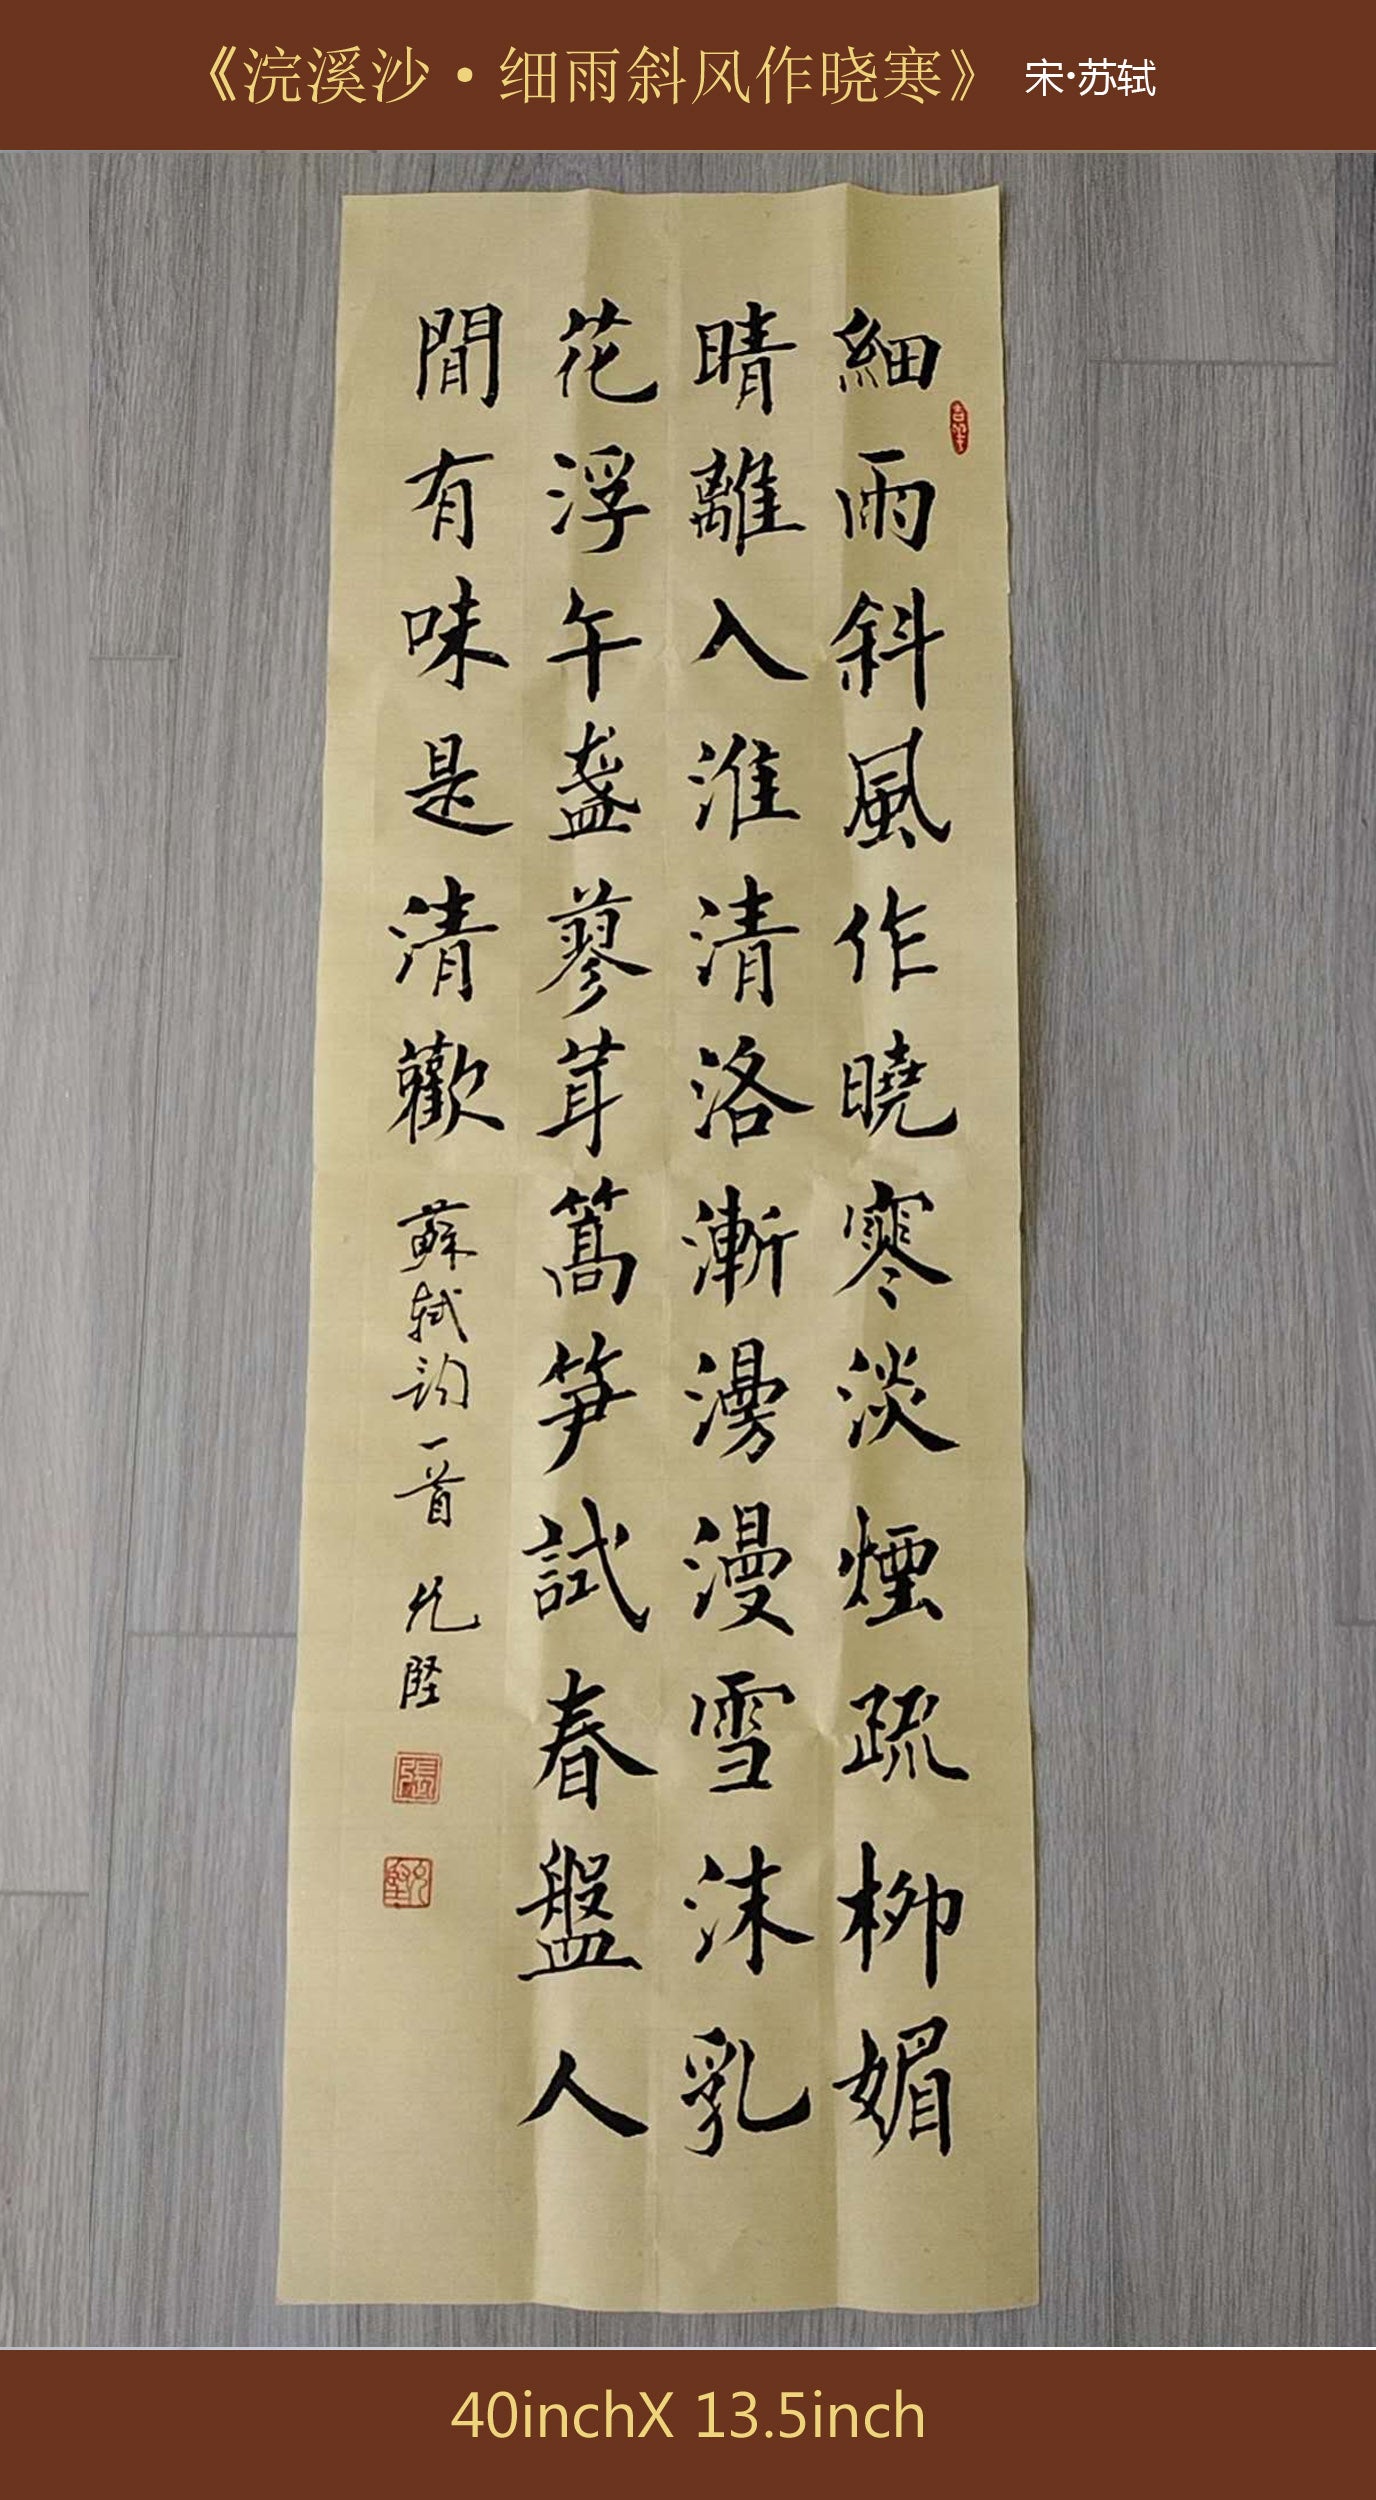 《浣溪沙·细雨斜风作晓寒》 宋·苏轼
細雨斜風作曉寒淡煙疏柳媚
晴離入淮清洛漸漫漫雪沫乳
花浮午盞蓼茸篙笋試春盤人
間有味是清歡 蘇軾詞一首 允堅
張
允堅
40inchX 13.5inch